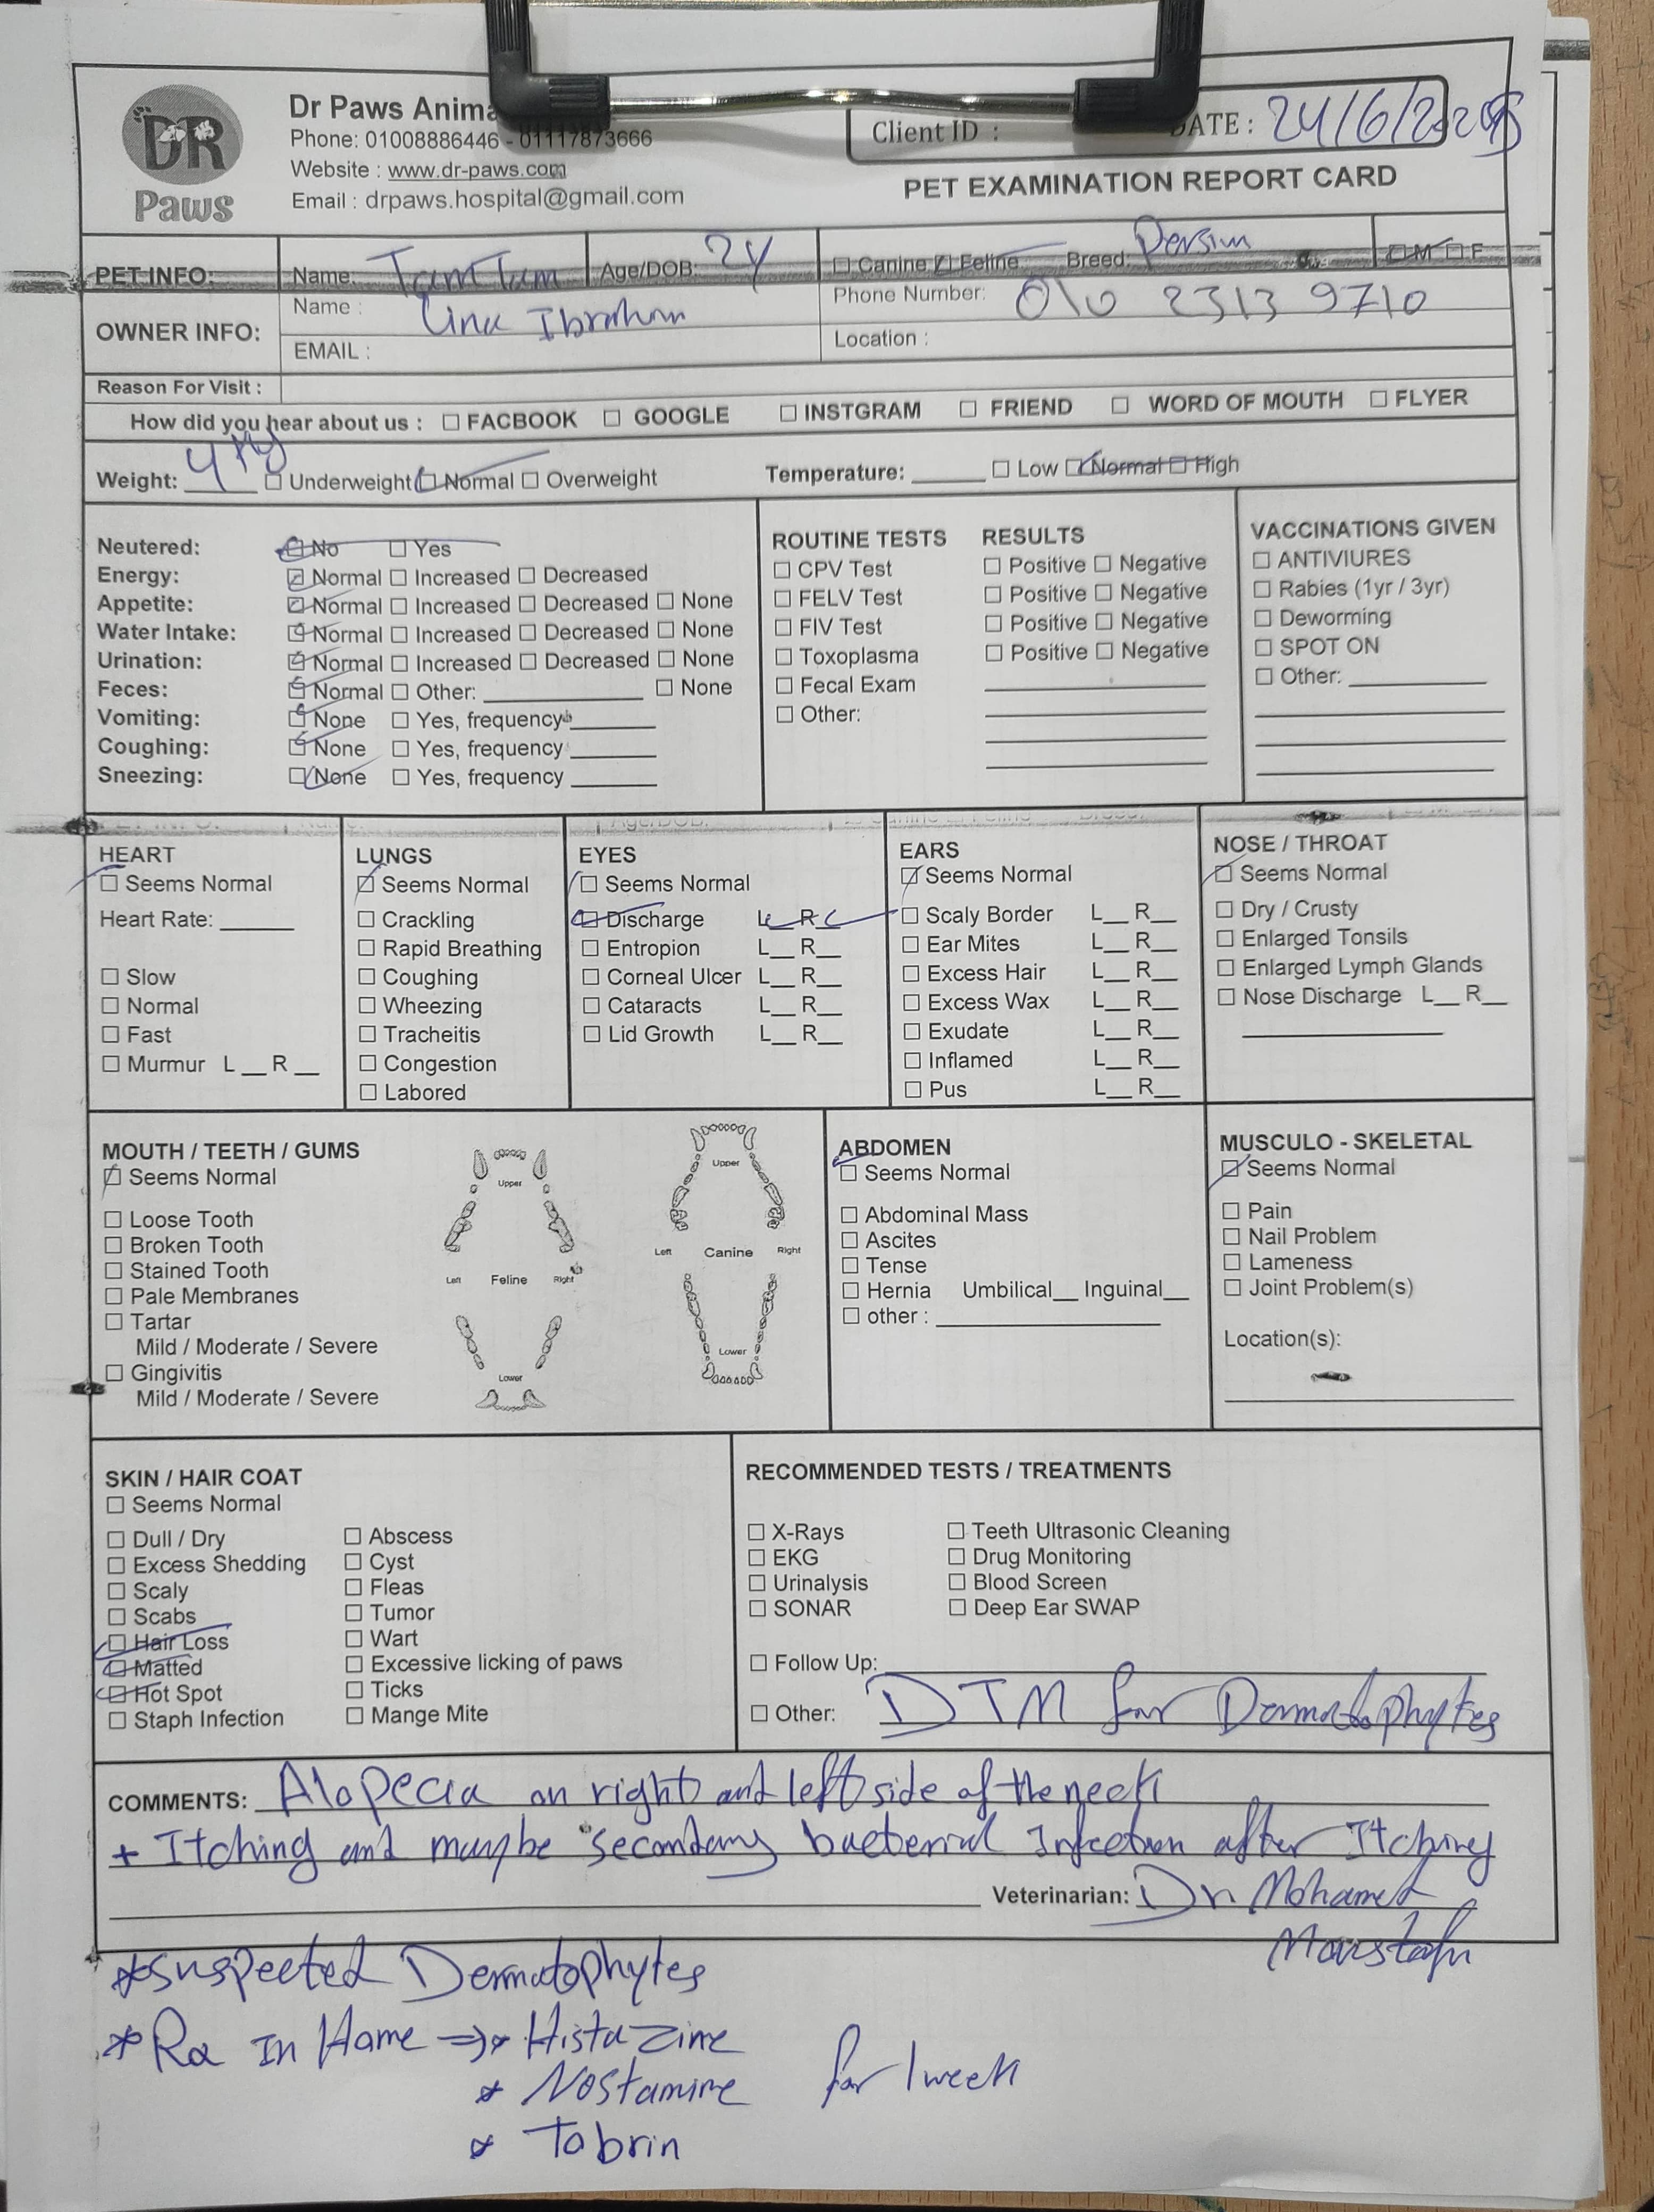 DR
Paws
Dr Paws Anima
Phone: 01008886446 - 01117873666
Website : www.dr-paws.com
Email : drpaws.hospital@gmail.com
Client ID :
DATE : 24/6/2025
PET EXAMINATION REPORT CARD
PET INFO: Name: TamTam Age/DOB: 2Y □ Canine ☑ Feline Breed: Persian □ M □ F
OWNER INFO: Name : Lina Ibrahim Phone Number: 010 2313 9710
EMAIL : Location :
Reason For Visit :
How did you hear about us : □ FACBOOK □ GOOGLE □ INSTGRAM □ FRIEND □ WORD OF MOUTH □ FLYER
Weight: 4 Kg □ Underweight ☑ Normal □ Overweight Temperature: ______ □ Low ☑ Normal □ High
Neutered: ☑ No □ Yes
Energy: ☑ Normal □ Increased □ Decreased
Appetite: ☑ Normal □ Increased □ Decreased □ None
Water Intake: ☑ Normal □ Increased □ Decreased □ None
Urination: ☑ Normal □ Increased □ Decreased □ None
Feces: ☑ Normal □ Other: ______ □ None
Vomiting: ☑ None □ Yes, frequency ______
Coughing: ☑ None □ Yes, frequency ______
Sneezing: ☑ None □ Yes, frequency ______
ROUTINE TESTS RESULTS
□ CPV Test □ Positive □ Negative
□ FELV Test □ Positive □ Negative
□ FIV Test □ Positive □ Negative
□ Toxoplasma □ Positive □ Negative
□ Fecal Exam
□ Other:
VACCINATIONS GIVEN
□ ANTIVIURES
□ Rabies (1yr / 3yr)
□ Deworming
□ SPOT ON
□ Other: ______
HEART
☑ Seems Normal
Heart Rate: ______
□ Slow
□ Normal
□ Fast
□ Murmur L __ R __
LUNGS
☑ Seems Normal
□ Crackling
□ Rapid Breathing
□ Coughing
□ Wheezing
□ Tracheitis
□ Congestion
□ Labored
EYES
☑ Seems Normal
☑ Discharge L ✓ R ✓
□ Entropion L__ R__
□ Corneal Ulcer L__ R__
□ Cataracts L__ R__
□ Lid Growth L__ R__
EARS
☑ Seems Normal
□ Scaly Border L__ R__
□ Ear Mites L__ R__
□ Excess Hair L__ R__
□ Excess Wax L__ R__
□ Exudate L__ R__
□ Inflamed L__ R__
□ Pus L__ R__
NOSE / THROAT
☑ Seems Normal
□ Dry / Crusty
□ Enlarged Tonsils
□ Enlarged Lymph Glands
□ Nose Discharge L__ R__
MOUTH / TEETH / GUMS
☑ Seems Normal
□ Loose Tooth
□ Broken Tooth
□ Stained Tooth
□ Pale Membranes
□ Tartar
Mild / Moderate / Severe
□ Gingivitis
Mild / Moderate / Severe
Upper
Left Feline Right
Lower
Upper
Left Canine Right
Lower
ABDOMEN
☑ Seems Normal
□ Abdominal Mass
□ Ascites
□ Tense
□ Hernia Umbilical__ Inguinal__
□ other : ______
MUSCULO - SKELETAL
☑ Seems Normal
□ Pain
□ Nail Problem
□ Lameness
□ Joint Problem(s)
Location(s):
SKIN / HAIR COAT
□ Seems Normal
□ Dull / Dry
□ Excess Shedding
□ Scaly
□ Scabs
☑ Hair Loss
☑ Matted
☑ Hot Spot
□ Staph Infection
□ Abscess
□ Cyst
□ Fleas
□ Tumor
□ Wart
□ Excessive licking of paws
□ Ticks
□ Mange Mite
RECOMMENDED TESTS / TREATMENTS
□ X-Rays □ Teeth Ultrasonic Cleaning
□ EKG □ Drug Monitoring
□ Urinalysis □ Blood Screen
□ SONAR □ Deep Ear SWAP
□ Follow Up:
□ Other: DTM for Dermatophytes
COMMENTS: Alopecia on right and left side of the neck
+ Itching and maybe secondary bacterial Infection after Itching
Veterinarian: Dr Mohamed
Moustafa
*suspected Dermatophytes
* Rx In Home => * Histazine
* Nostamine for 1 week
* Tobrin